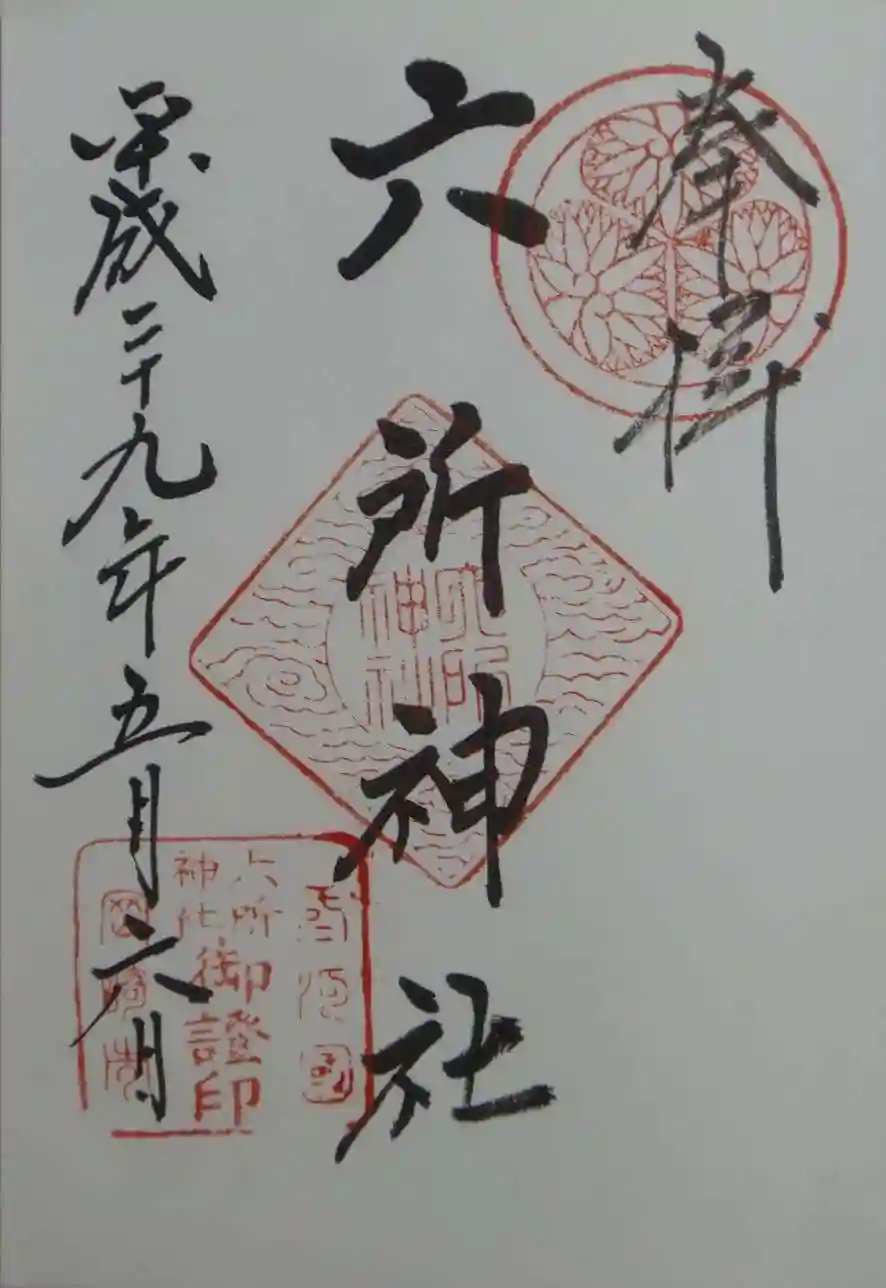 奉拝
六所神社
平成二十九年五月六日
六所
神社
六所
神社
御證印
岡崎市